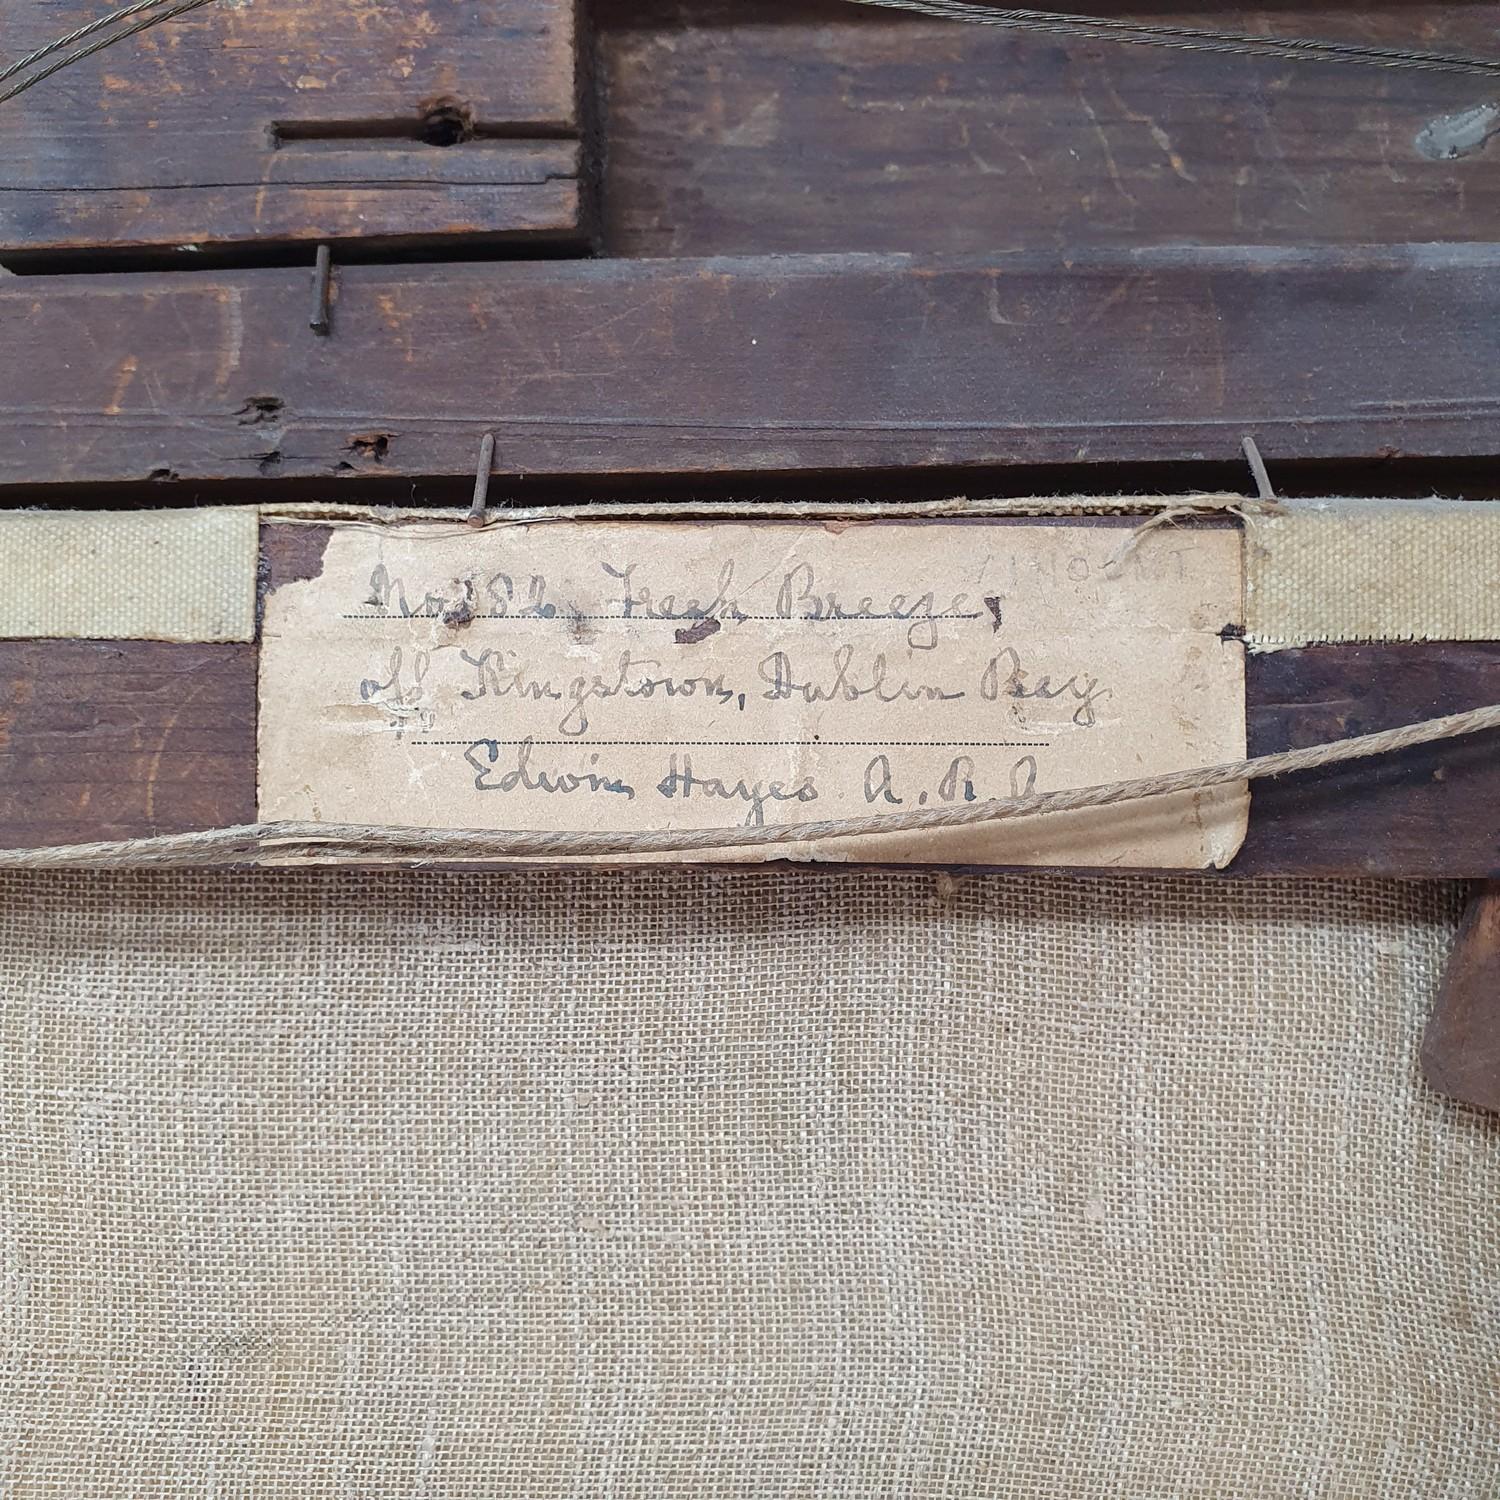 No 282, Fresh Breeze,
off Kingstown, Dublin Bay
Edwin Hayes. A. R. A